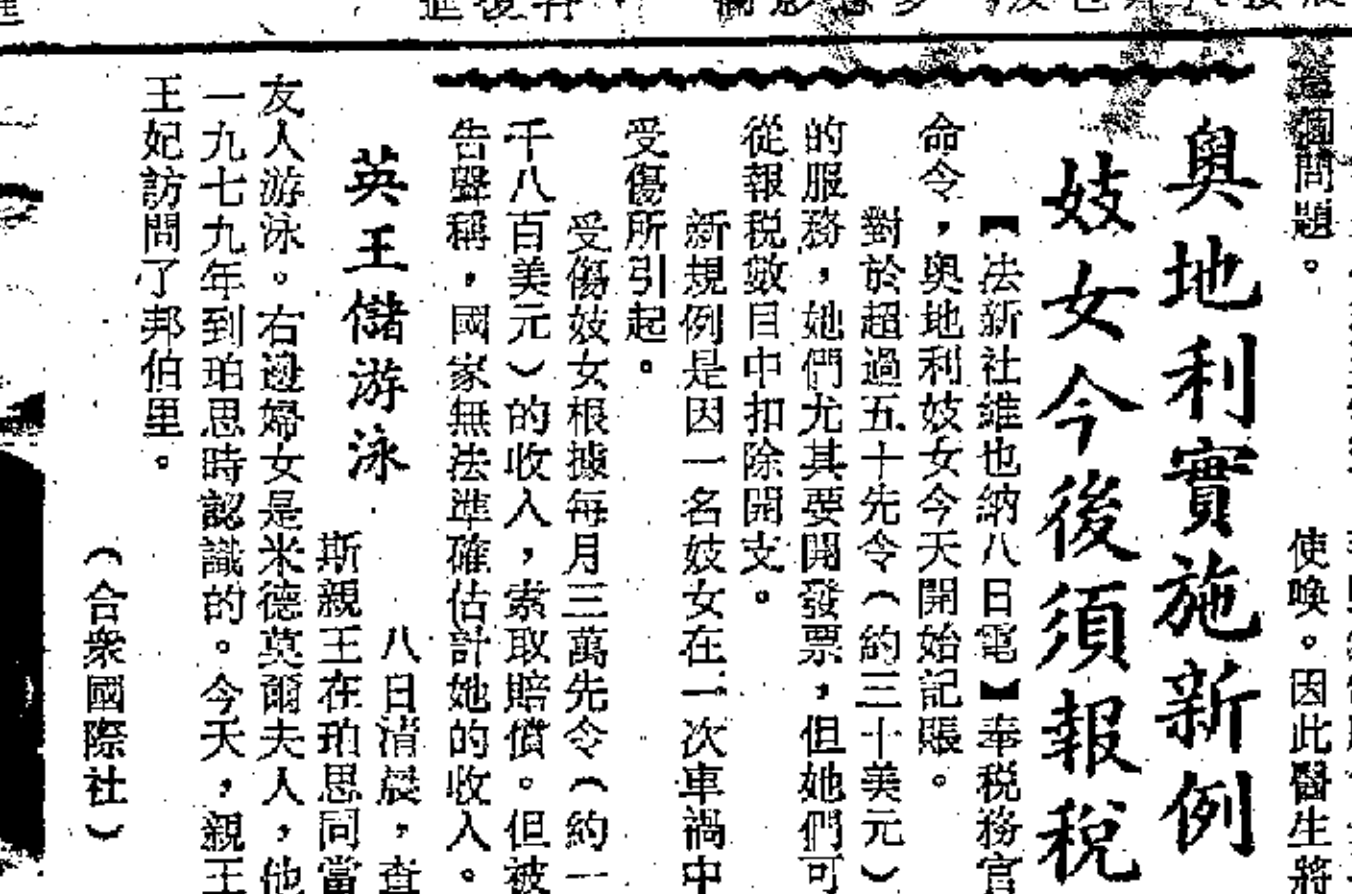 這個問題。
使喚。因此醫生將
奧地利實施新例
妓女今後須報税
【法新社維也納八日電】奉税務官
命令，奧地利妓女今天開始記賬。
對於超過五十先令（約三十美元）
的服務，她們尤其要開發票，但她們可
從報税數目中扣除開支。
新規例是因一名妓女在一次車禍中
受傷所引起。
受傷妓女根據每月三萬先令（約一
千八百美元）的收入，索取賠償。但被
告聲稱，國家無法準確估計她的收入。
英王儲游泳
八日清晨，查
斯親王在珀思同當
友人游泳。右邊婦女是米德莫爾夫人，他
一九七九年到珀思時認識的。今天，親王
王妃訪問了邦伯里。
（合衆國際社）